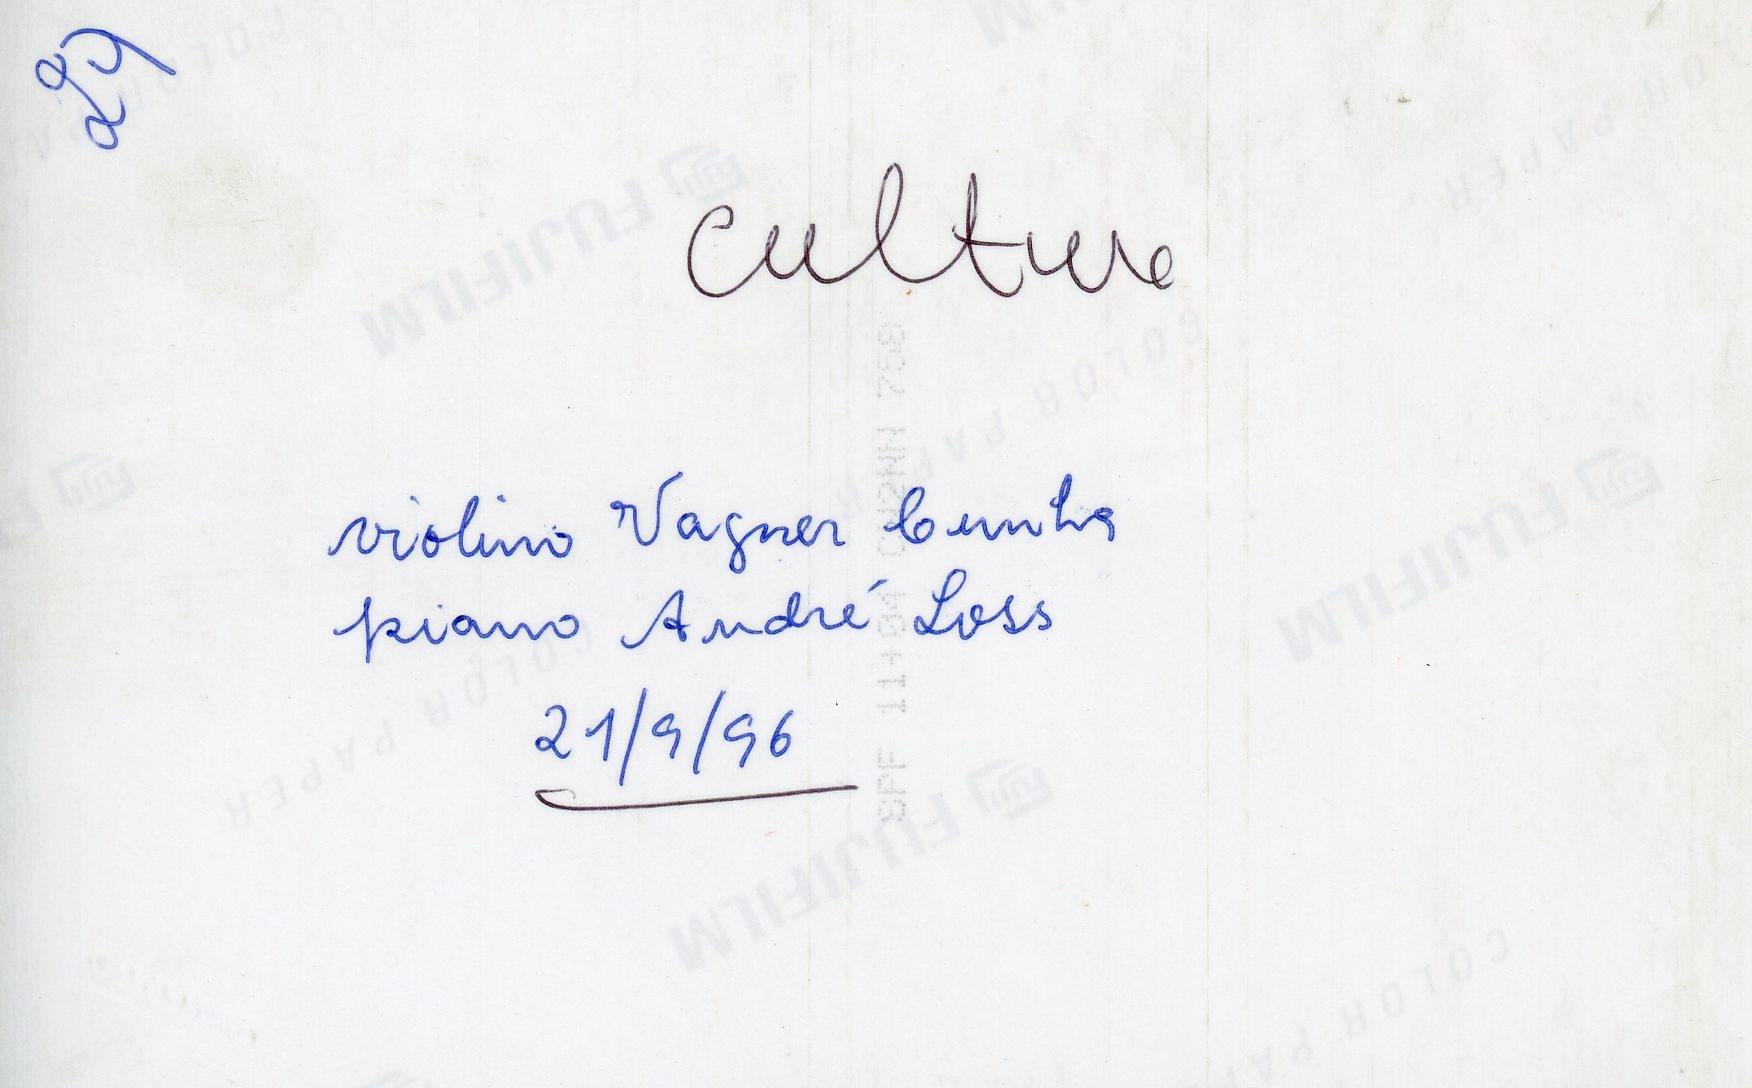 Cultura
violino Vagner Cunha
piano André Loss
21/9/96
FUJIFILM
COLOR PAPER
FUJIFILM
COLOR PAPER
FUJIFILM
COLOR PAPER
FUJIFILM
COLOR PAPER